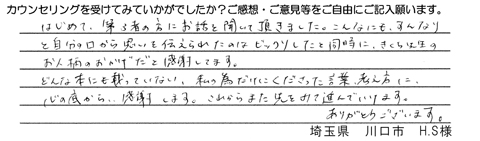 カウンセリングを受けてみていかがでしたか？ご感想・ご意見等をご自由にご記入願います。
はじめて、第3者の方にお話を聞いて頂きました。こんなにも、すんなり
と自分の口から思いを伝えられたのはビックリしたと同時に、きくち先生の
お人柄のおかげだと感謝してます。
どんな本にも載っていない、私の為だけにくださった言葉、考え方に、
心の底から、感謝します。これからまた先を向いて進んでいけます。
ありがとうございます。
埼玉県 川口市 H.S様